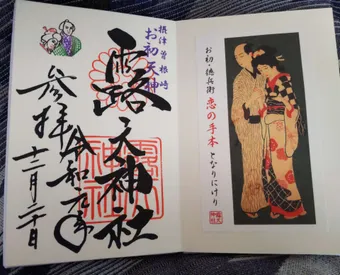 お初・徳兵衛 恋の手本 となりにけり
露天神社
摂津曽根崎
お初天神
露天神社
令和元年
参拝
十二月二十日